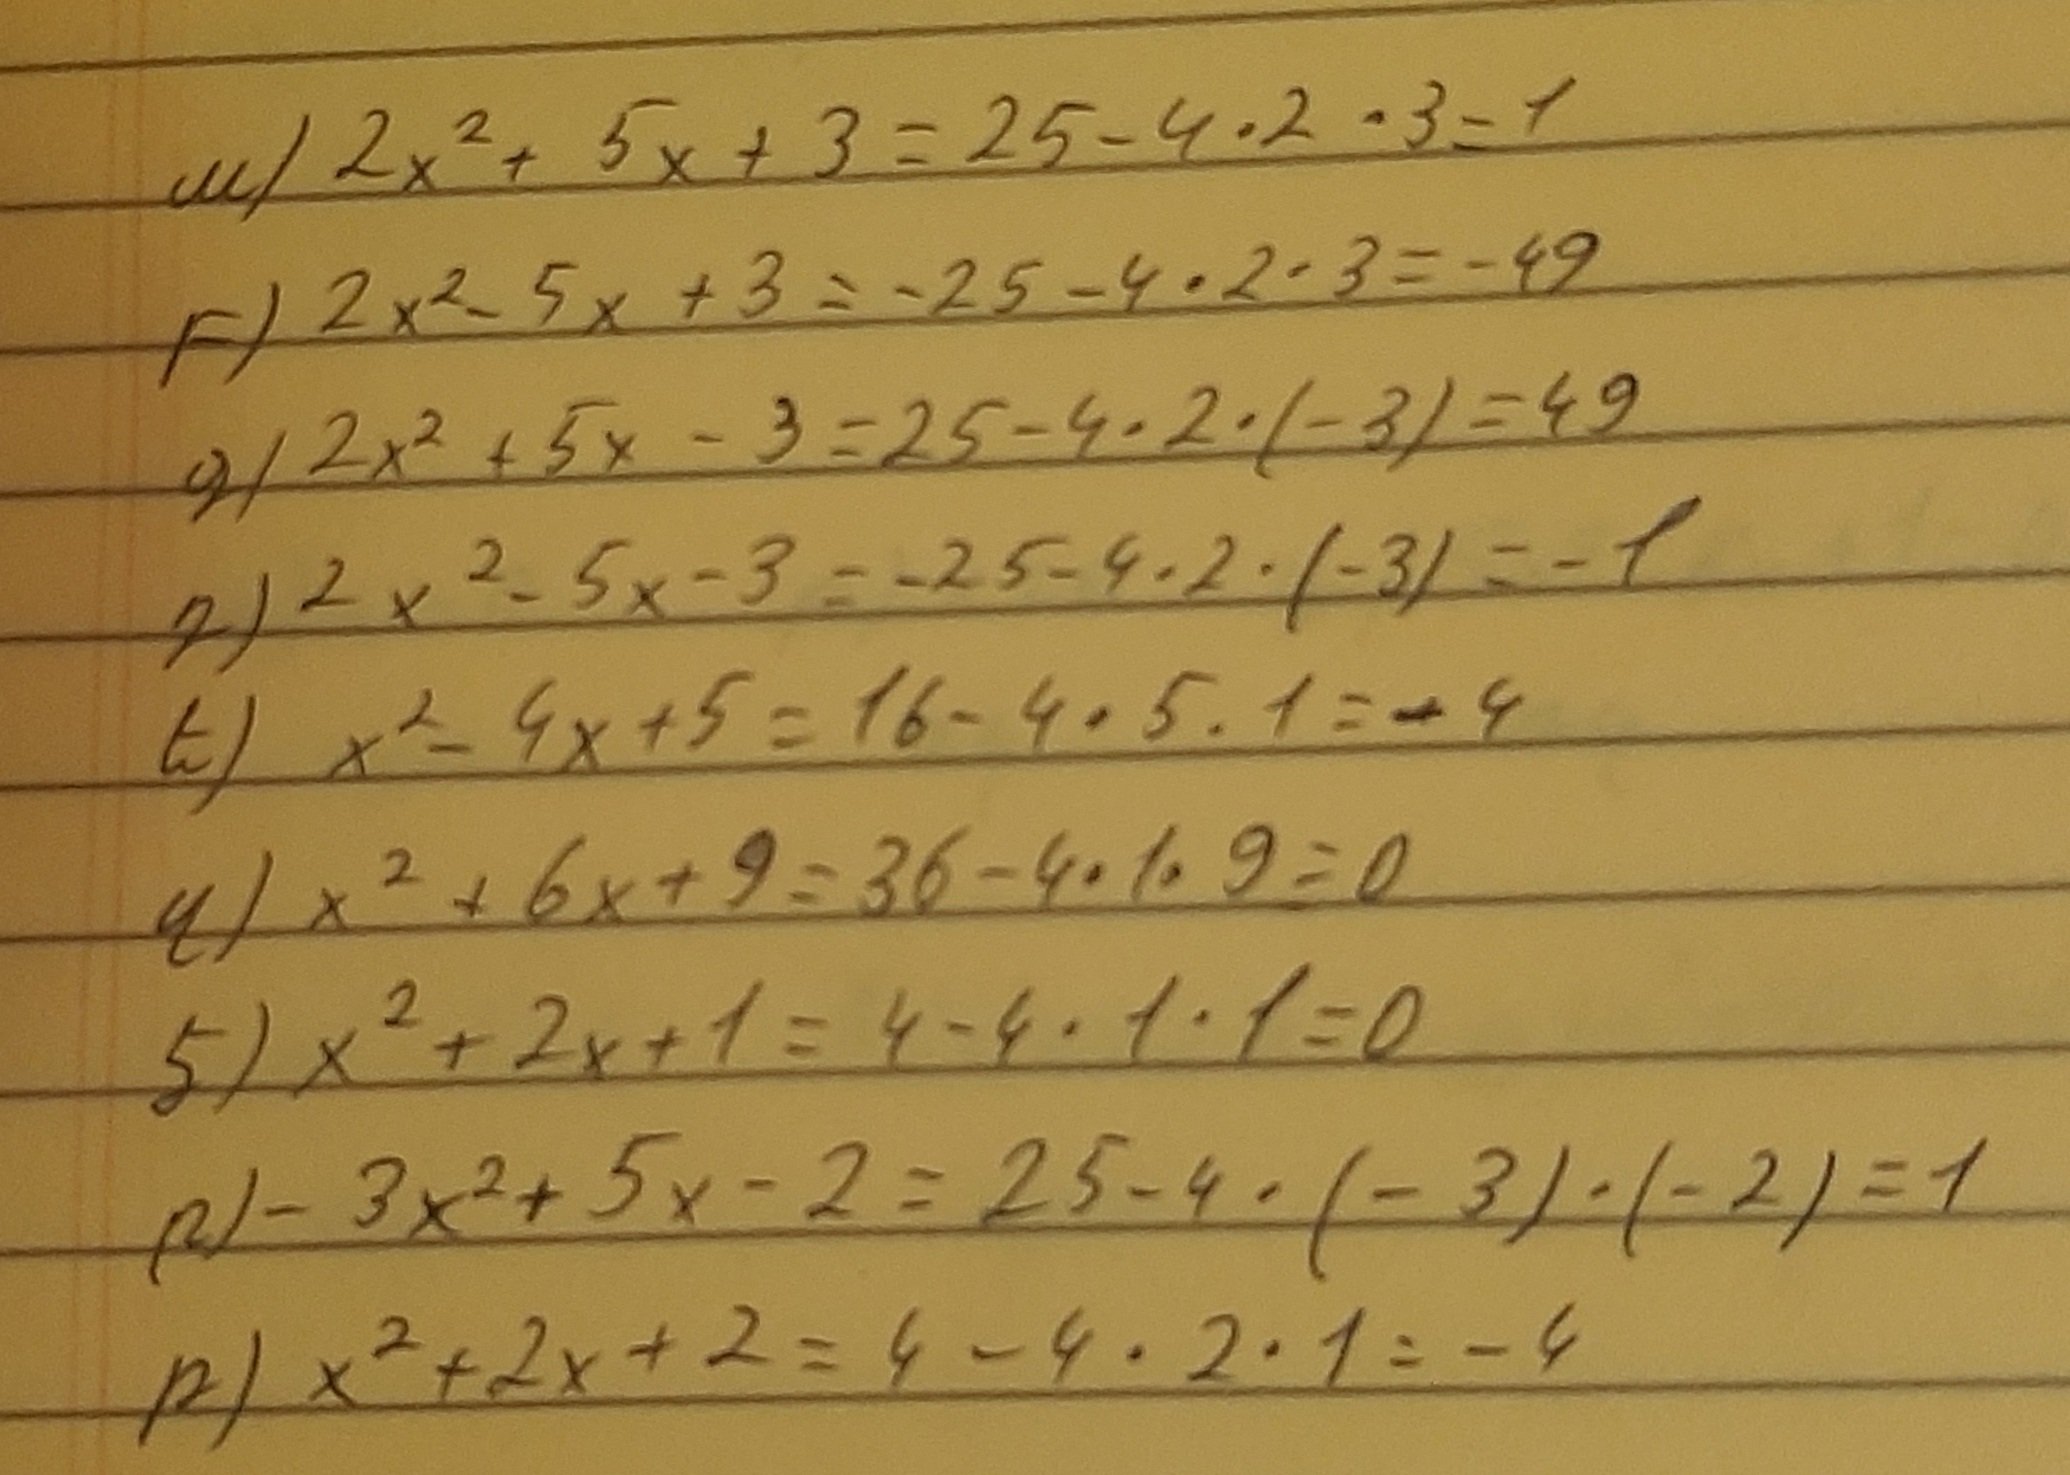 ա) 2x² + 5x + 3 = 25 - 4 · 2 · 3 = 1
բ) 2x² - 5x + 3 = -25 - 4 · 2 · 3 = -49
գ) 2x² + 5x - 3 = 25 - 4 · 2 · (-3) = 49
դ) 2x² - 5x - 3 = -25 - 4 · 2 · (-3) = -1
ե) x² - 4x + 5 = 16 - 4 · 5 · 1 = -4
զ) x² + 6x + 9 = 36 - 4 · 1 · 9 = 0
է) x² + 2x + 1 = 4 - 4 · 1 · 1 = 0
ը) - 3x² + 5x - 2 = 25 - 4 · (-3) · (-2) = 1
թ) x² + 2x + 2 = 4 - 4 · 2 · 1 = -4